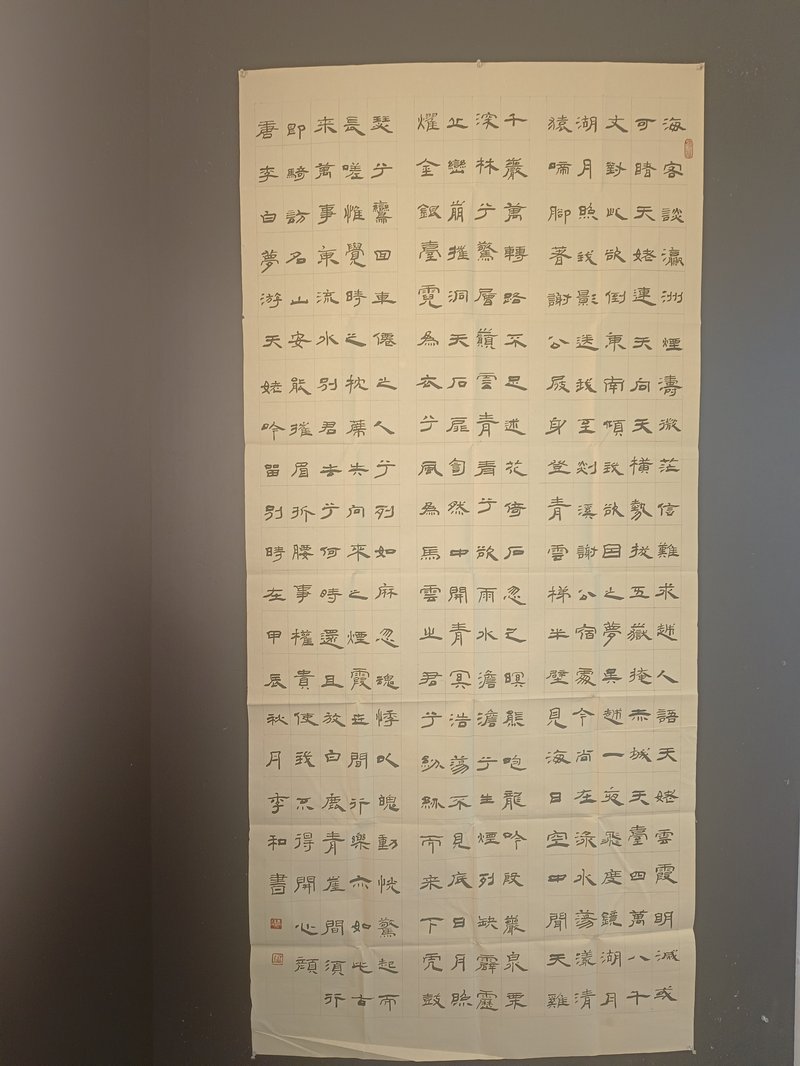 海客談瀛洲煙濤微茫信難求越人語天姥雲霞明滅或
可睹天姥連天向天橫勢拔五嶽掩赤城天臺四萬八千
丈對此欲倒東南傾我欲因之夢吳越一夜飛度鏡湖月
湖月照我影送我至剡溪謝公宿處今尚在淥水蕩漾清
猿啼腳著謝公屐身登青雲梯半壁見海日空中聞天雞
千巖萬轉路不定迷花倚石忽已暝熊咆龍吟殷巖泉栗
深林兮驚層巔雲青青兮欲雨水澹澹兮生煙列缺霹靂
丘巒崩摧洞天石扉訇然中開青冥浩蕩不見底日月照
燿金銀臺霓為衣兮風為馬雲之君兮紛紛而来下虎鼓
瑟兮鸞回車僊之人兮列如麻忽魂悸以魄動怳驚起而
長嗟惟覺時之枕席失向來之煙霞世間行樂亦如此古
来萬事東流水別君去兮何時還且放白鹿青崖間須行
即騎訪名山安能摧眉折腰事權貴使我不得開心顏
唐李白夢游天姥吟留別時在甲辰秋月李和書